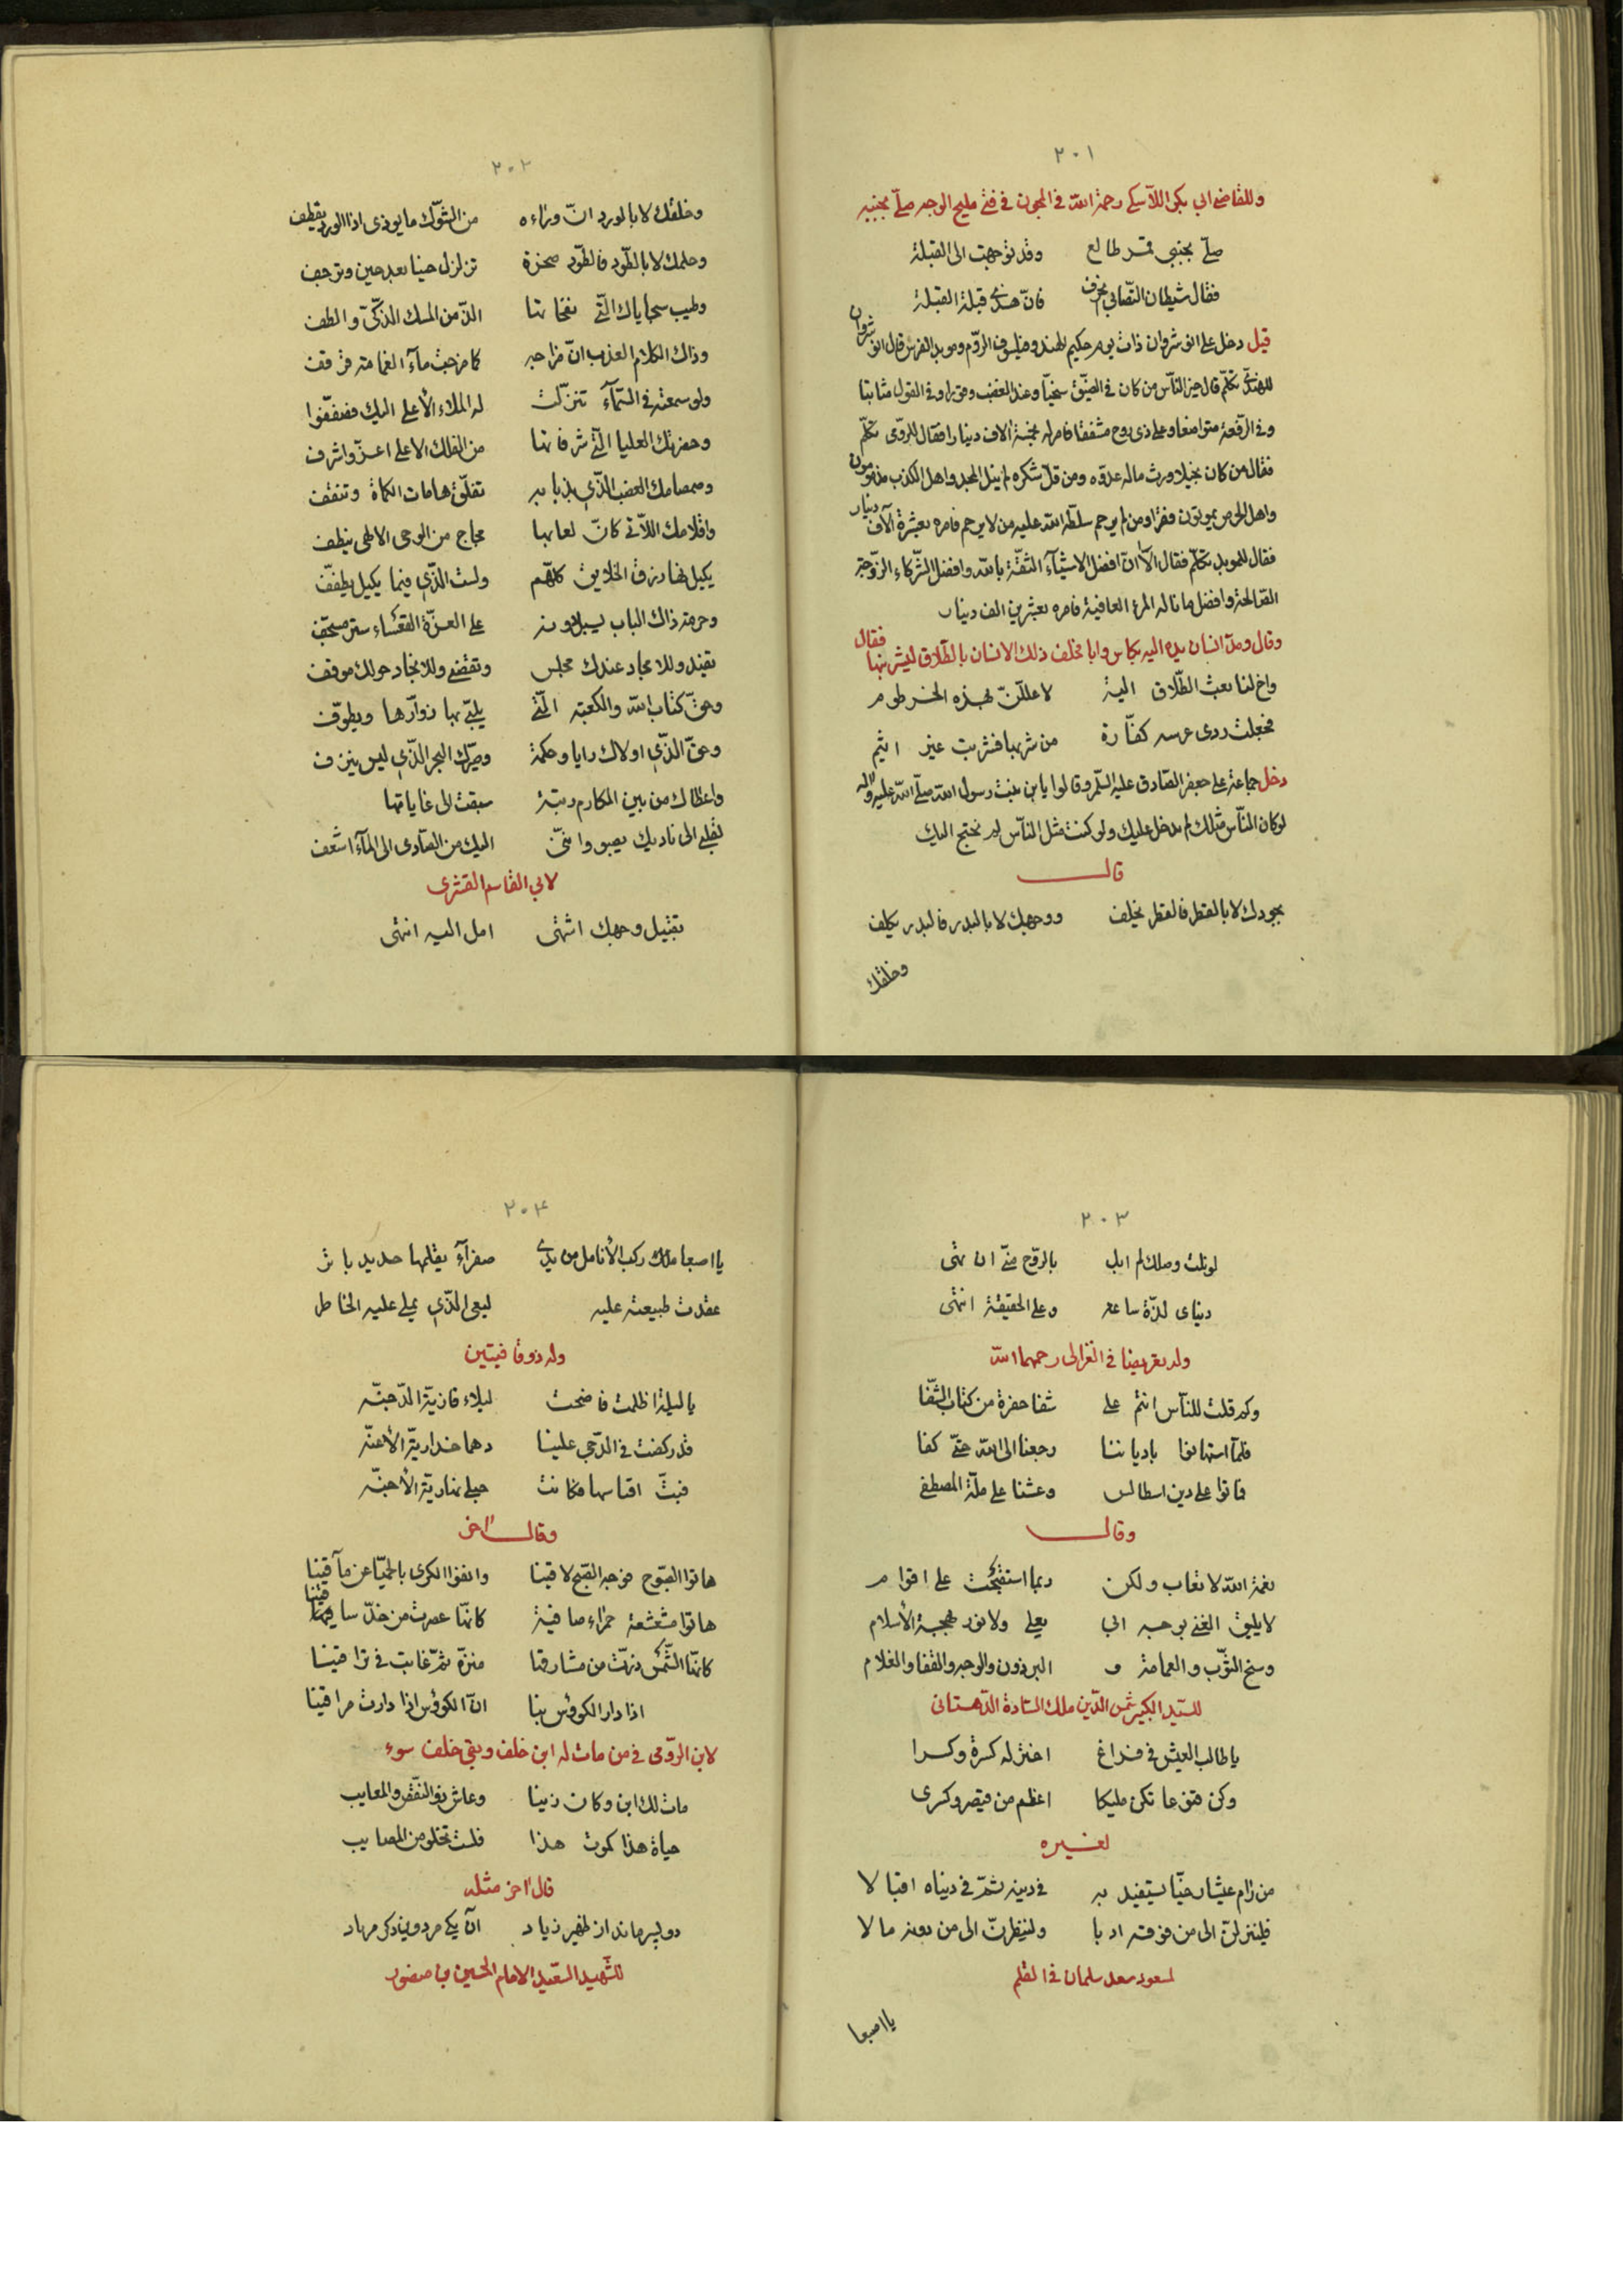 ٢٠١
وللقاضي ابي بكر اللآسكي رحمة الله في المجون في فتى مليح الوجه صلّى بجنبه
صلّى بجنبي قمر طالع وقد توجهت الى القبلة
فقال شيطان التصابي انحرف فانّ هذي قبلة القبلة
قيل دخل على انوشروان ذات يوم حكيم الهند وفيلسوف الروم وموبد الفرس فقال انوشروان
للهندي تكلّم قال خير الناس من كان في الضيق سخيّا وعند الغضب وقورا وفي القول متانيا
وفي الرفعة متواضعا وعلى ذي روح مشفقا فامر له بخمسة الاف دينارا فقال للرومي تكلّم
فقال من كان بخيلا ورث ماله عدوّه ومن قلّ شكره لم ينل المجد واهل الكذب مذمومون
واهل الحرص يموتون فقرا ومن لم يرحم سلّط الله عليه من لا يرحم فامره بعشرة آلاف دينار
فقال للموبد تكلّم فقال الآ انّ افضل الاشيآء الثقة بالله وافضل الشركاء الزوجة
الصالحة وافضل ما ناله المرء العافية فامره بعشرين الف دينار
وقال ومدّ انسان يده اليه بكاس وابا فحلف ذلك الانسان بالطلاق ليشربنها فقال
واخ لنا بعث الطّلاق الية لاعللنّ بهذه الخرطوم
فجعلت ردى عرسه كفّارة من شربها فشربت غير اثيم
دخل جماعة على جعفر الصّادق عليه السّلم وقالوا يابن بنت رسول الله صلّى الله عليه وآله
لو كان النّاس مثلك لم ندخل عليك ولو كنت مثل النّاس لم نحتج اليك
قال
بجودك لا بالقطر فالقطر يخلف ووجهك لا بالبدر فالبدر يكلف
وخلقك
٢٠٢
وخلقك لا بالورد انّ وراءه من الشّوك ما يوذى اذا الورد يقطف
وحلمك لا بالطّود فالطّود صخرة تزلزل حينا بعد حين وترجف
وطيب سجاياك الّتي نفحاتها الذّ من المسك الذكيّ والطف
وذاك الكلام العذب انّ مزاجه كما مزجت مآء الغمامة قرقف
ولو سمعته في السّمآء تنزّلت له الملاء الأعلى اليك فصفّفوا
وحضرتك العليا الّتي شرفاتها من الفلك الاعلى اعزّ واشرف
وصمصامك العضب الّذي بذبابه تفلّق هامات الكماة وتنقف
واقلامك اللاّتي كانّ لعابها مجاج من الوحى الالهى ينطف
يكيل بها رزق الخلايق كلّهم ولست الّذي فيما يكيل يطفّف
وحرمة ذاك الباب يسبل دونه على العزّة القعساء ستر مسجّف
يفيد وللامجاد عندك مجلس وتقضي وللانجاد حولك موقف
وحقّ كتاب الله والكعبة الّتي يلبّي بها زوّارها ويطوّف
وحقّ الّذي اولاك رايا وحكمة وصيّرك البحر الّذي ليس ينزف
واعطاك من بين المكارم رتبة سبقت الى غاياتها
لقلبي الى ناديك يصبو وانّني اليك من الصّادى الى المآء اشعف
لابي القاسم القشرى
تقبيل وجهك اشتهى امل اليه انتهى
٢٠٣
لو نلت وصلك لم ابل بالرّوح منّي ان تهى
دنياى لذّة ساعة وعلى الحقيقة انتهى
وله تعريضا في الغزالى رحمهما الله
وكم قلت للنّاس انتم على شفا حفرة من كتاب الشّفا
فلمآ استهانوا باديانننا رجعنا الى الله حتّى كفا
فماتوا على دين اسطالس وعشنا على ملّة المصطفى
وقال
نعمة الله لا تعاب ولكن ربما استقبحت على اقوام
لا يليق الغنى بوجه ابي يعلى ولا نور بهجة الأسلام
وسخ الثّوب والعمامة و البرذون والوجه والقفا والغلام
للسيّد الكبير شمس الدّين ملك السّادة الدّهستانى
يا طالب العيش في فراغ اختر له كسرة وكسرا
وكن قنوعا تكن مليكا اعظم من قيصر وكسرى
لغيره
من رام عيشا رخيّا يستفيد به في دينه ثمّ في دنياه اقبالا
فلينزلنّ الى من فوقه ادبا ولينظرنّ الى من دونه مالا
لمسعود سعد سلمان في القلم
يا اصبعا
٢٠٤
يا اصبعا ملك ركب الأنامل من يدي صفرآء يقلمها حديد باتر
عقدت طبيعته عليه ليعى الّذي يملى عليه الخاطر
وله ذوقافيتين
يا ليلة اظلمت فاضحت ليلاء قاريّة الدّجنّه
قد ركضت في الدّجى علينا دهما خداريّة الأعنّه
فبتّ اقتاسها فكانت حبلى نهاريّة الأجنّه
وقال اخر
هاتوا الصّبوح فوجه الصّبح لاقينا وانفوا الكرى بالحميّا عن مآقينا
هاتوا مشعشعة حمراء صافية كانّما عصرت من خدّ ساقينا
كانّما الشّمس بزّت من مشارقها منزّة ثمّ غابت في تراقينا
اذا دار الكوؤس بنا انّ الكوؤس اذا دارت مراقينا
لابن الرّومى في من مات له ابن خلف وبقي خلف سوء
مات لك ابن وكان زينا وعاش ذو النّقص والمعايب
حياة هذا كموت هذا فلست تخلو من المصايب
قال اخر مثله
دو پسر ماند از ظهير زياد آن يكى مرد وين دگر مرباد
للشّهيد السّعيد الامام الحسين بن منصور